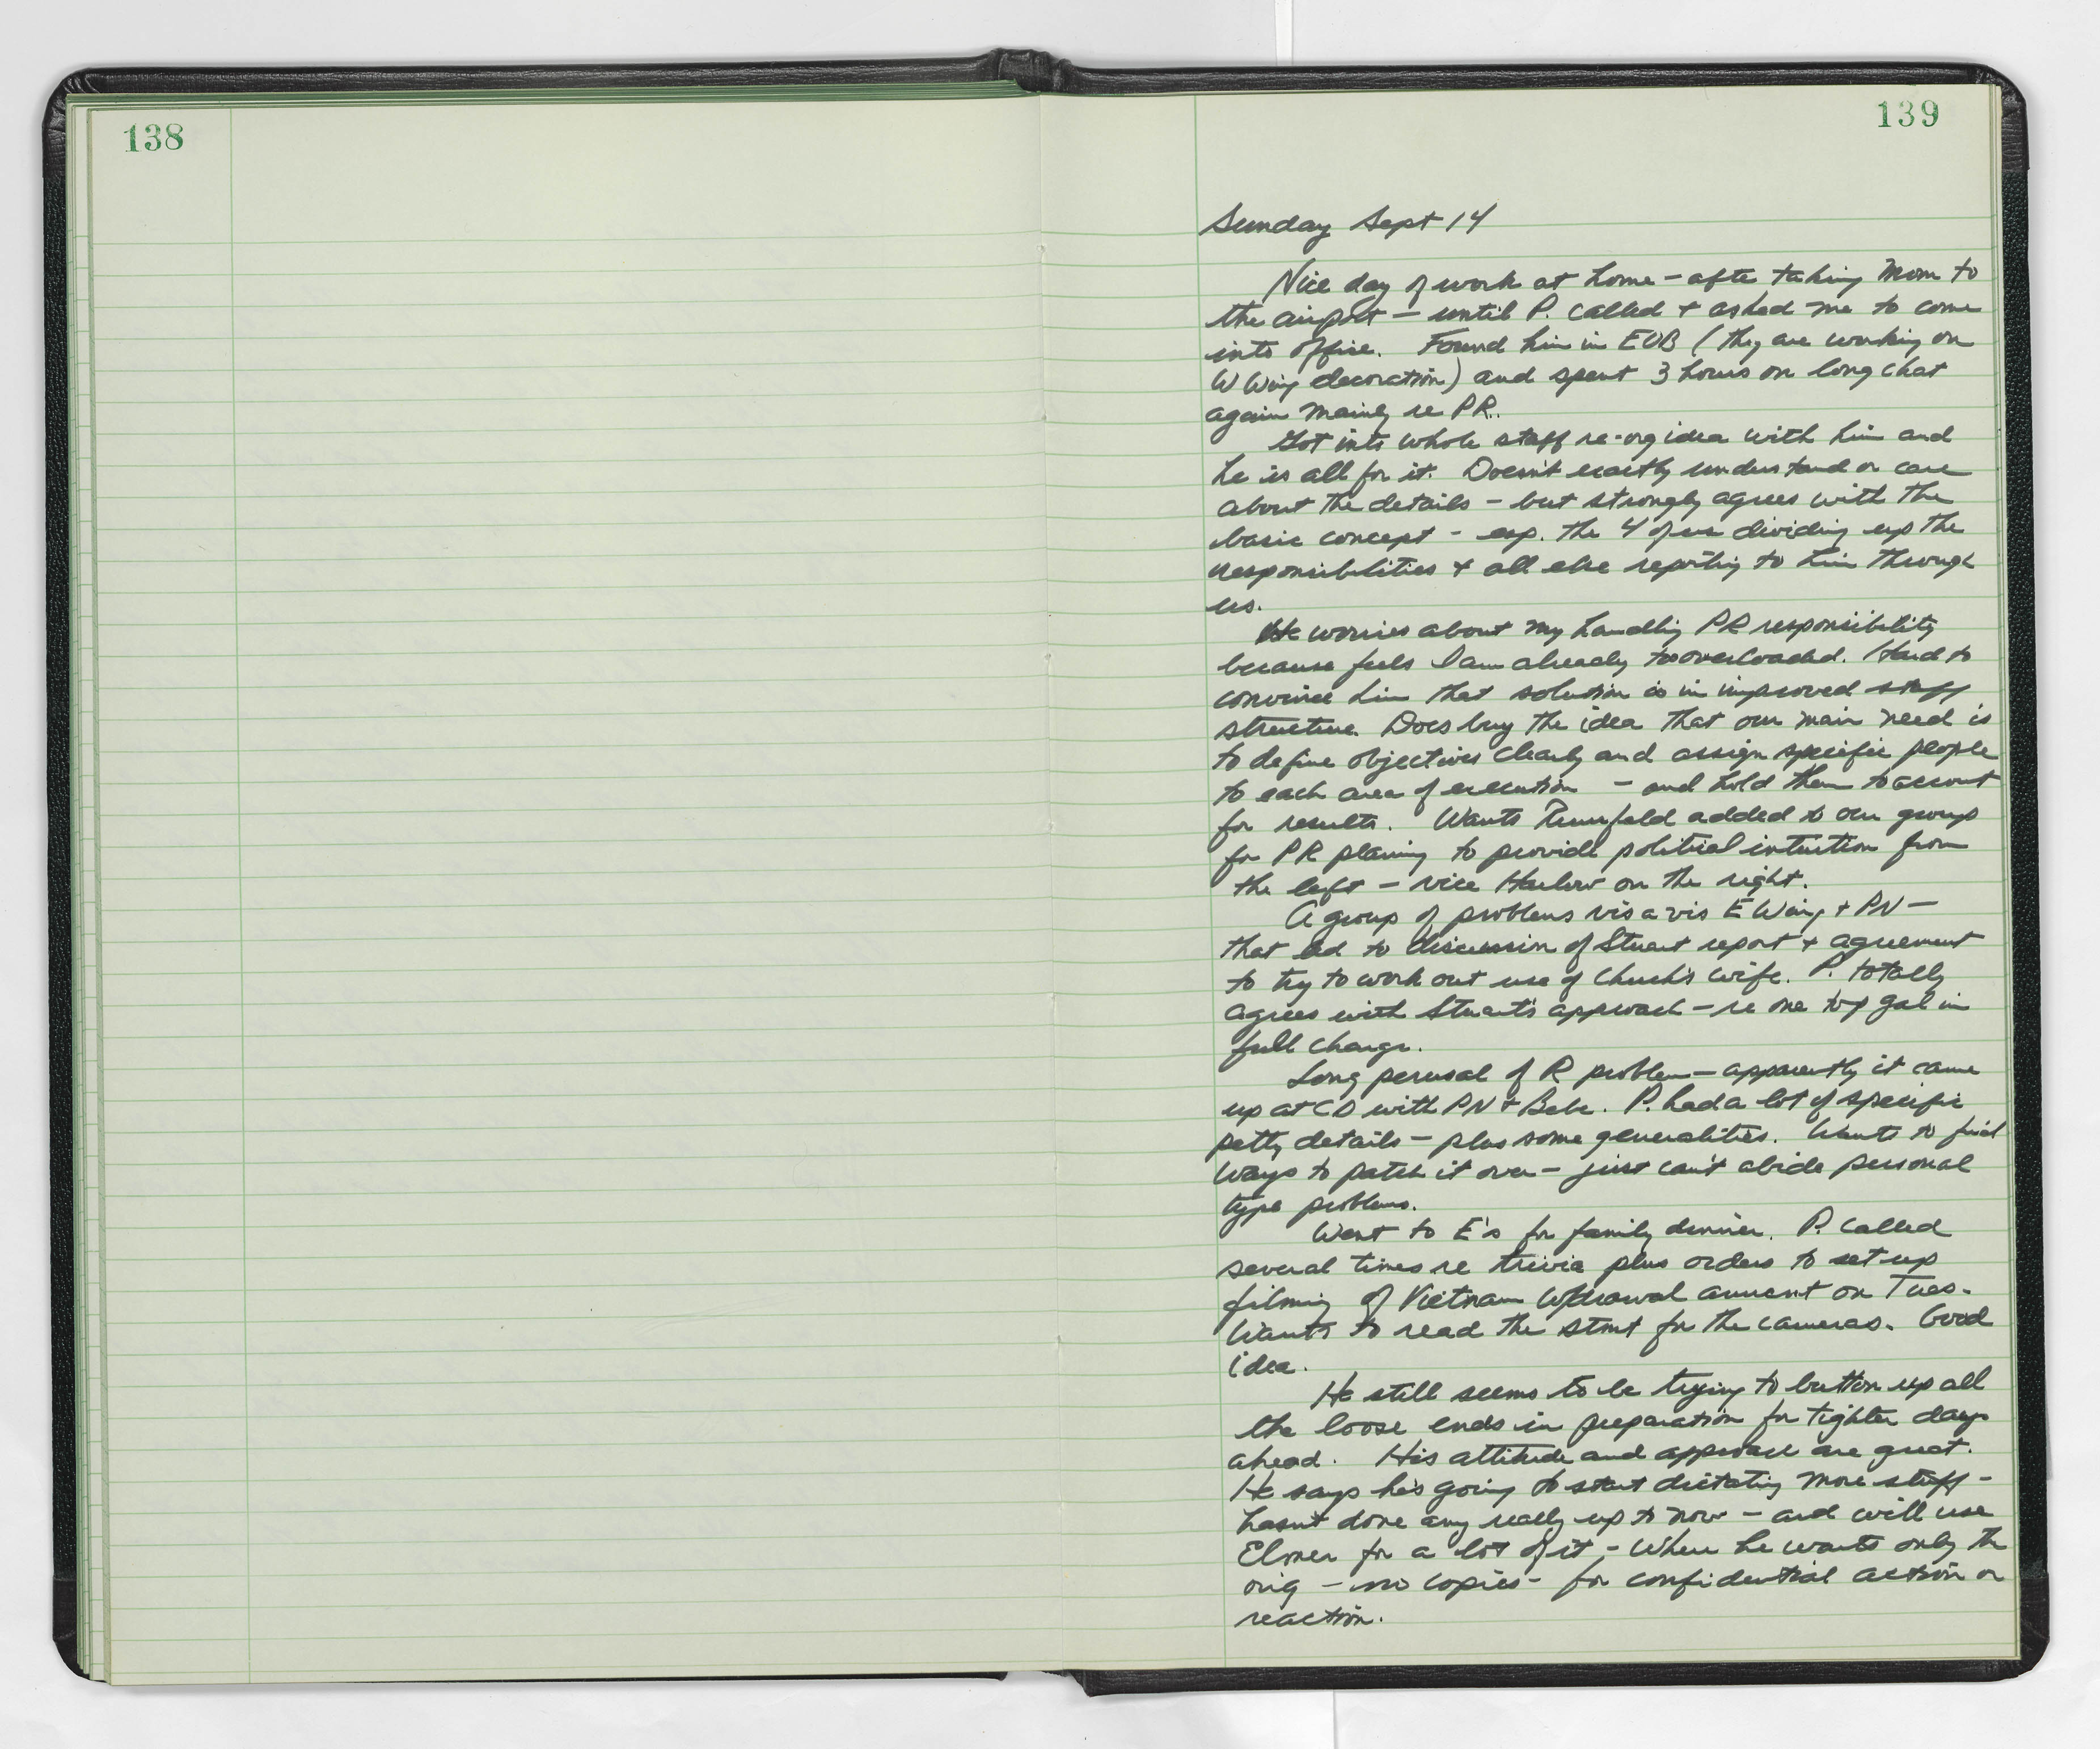 138
139
Sunday Sept 14
Nice day of work at home - after taking Mom to
the airport - until P. called + asked me to come
into office. Found him in EOB (they are working on
W Wing decoration) and spent 3 hours on long chat
again mainly re PR.
Got into whole staff re-org idea with him and
he is all for it. Doesn't exactly understand or care
about the details - but strongly agrees with the
basic concept - esp. the 4 of us dividing up the
responsibilities + all else reporting to him through
us.
He worries about my handling PR responsibility
because feels I am already too overloaded. Hard to
convince him that solution is in improved staff
structure. Does buy the idea that our main need is
to define objectives clearly and assign specific people
to each area of execution - and hold them to account
for results. Wants Rumsfeld added to our group
for PR planning to provide political intuition from
the left - vice Harlow on the right.
A group of problems vis a vis E Wing + PN -
that led to discussion of Stuart report + agreement
to try to work out use of Chuck's wife. P. totally
agrees with Stuart's approach - re one top gal in
full charge.
Long perusal of R problem - apparently it came
up at CD with PN + Bebe. P. had a lot of specific
petty details - plus some generalities. Wants to find
ways to patch it over - just can't abide personal
type problems.
Went to E's for family dinner. P. called
several times re trivia plus orders to set up
filming of Vietnam w/drawal anncnt on Tues.
Wants to read the stmt for the cameras. Good
idea.
He still seems to be trying to button up all
the loose ends in preparation for tighter days
ahead. His attitude and approach are great.
He says he's going to start dictating more stuff -
hasn't done any really up to now - and will use
Elmer for a lot of it - where he wants only the
orig - no copies - for confidential action or
reaction.